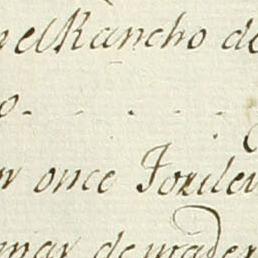 n el Rancho de
o. - - - -
n once Jorilen
mar de mader